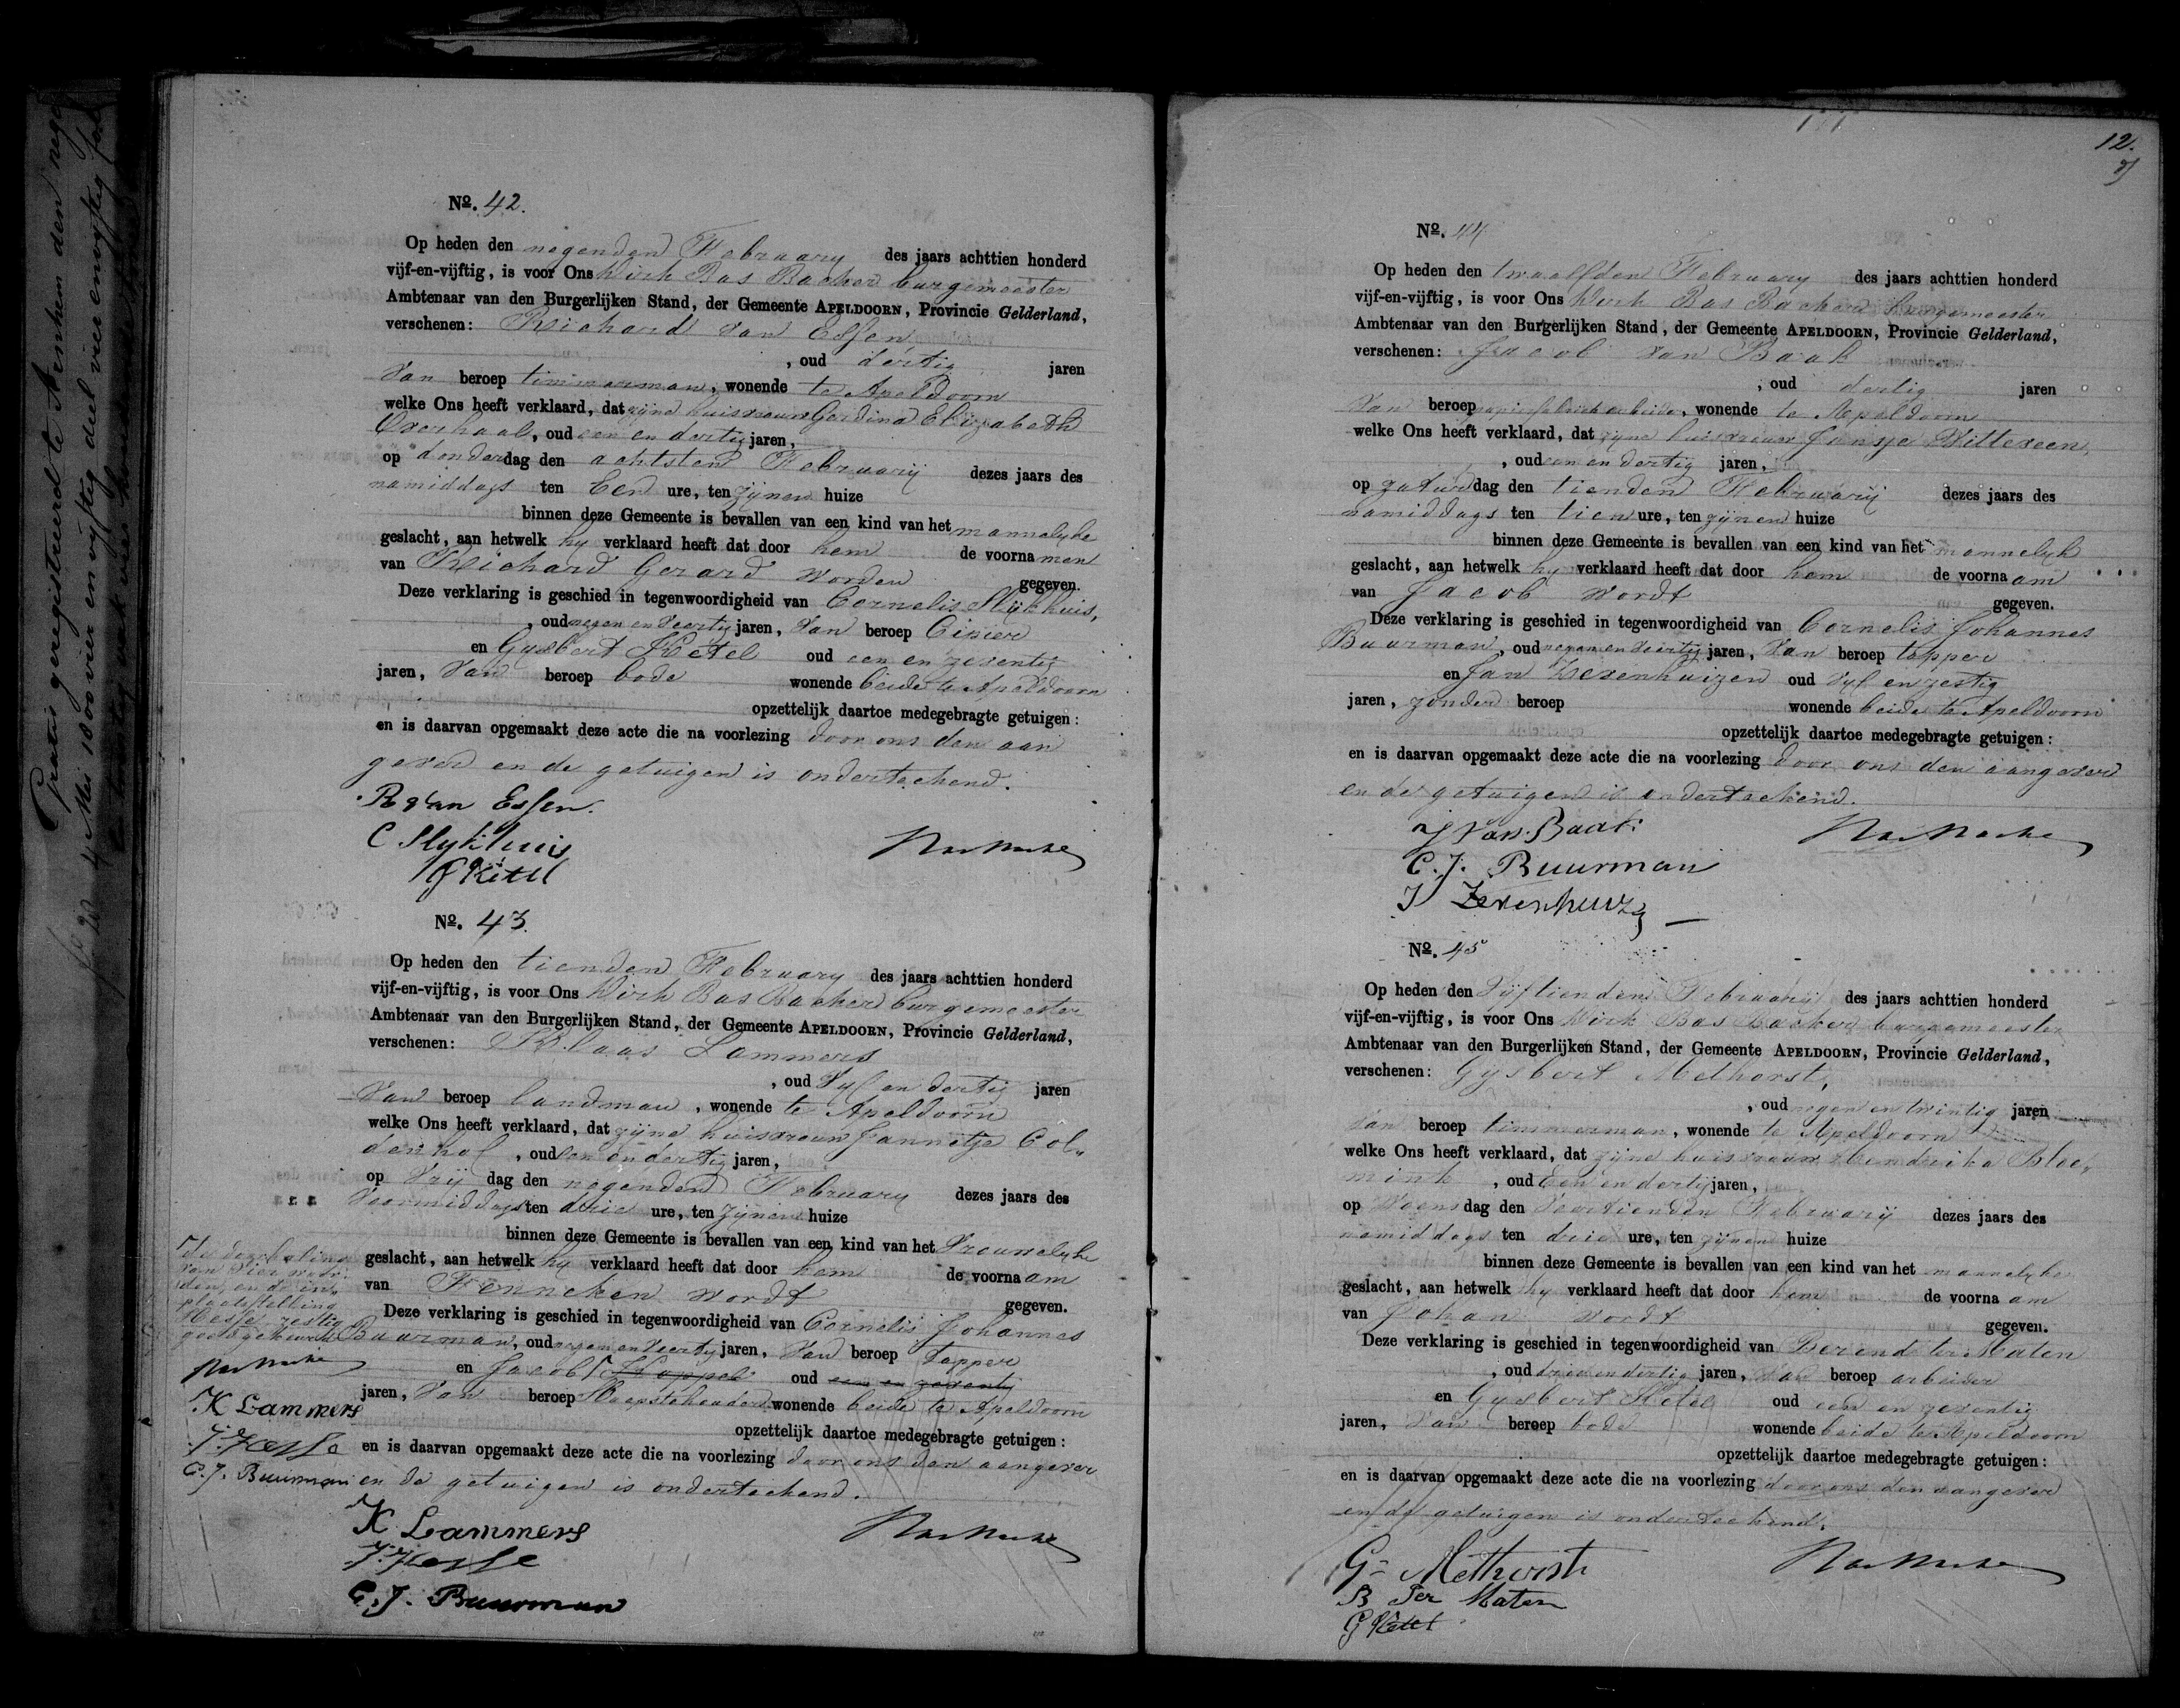 Gratis geregistreerd te Arnhem den
4 Mei 1800 vier en vyftig deel vier en vyftig fol
12.
No. 42.
Op heden den negenden February des jaars achttien honderd
vijf-en-vijftig, is voor Ons Dirk Bas Backer burgemeester
Ambtenaar van den Burgerlijken Stand, der Gemeente APELDOORN, Provincie Gelderland,
verschenen: Richard van Essen
, oud dertig jaren
van beroep timmerman, wonende te Apeldoorn
welke Ons heeft verklaard, dat zijne huisvrouw Gerdina Elizabeth
Overhaal, oud een en dertig jaren,
op donderdag den achtsten February dezes jaars des
namiddags ten Een ure, ten zijnen huize
binnen deze Gemeente is bevallen van een kind van het mannelyke
geslacht, aan hetwelk hy verklaard heeft dat door hem de voornamen
van Richard Gerard worden gegeven.
Deze verklaring is geschied in tegenwoordigheid van Cornelis Slijkhuis,
, oud negen en veertig jaren, van beroep Cipier
en Gysbert Ketel oud een en zeventig
jaren, van beroep bode wonende beide te Apeldoorn
opzettelijk daartoe medegebragte getuigen:
en is daarvan opgemaakt deze acte die na voorlezing door ons den aan
gever en de getuigen is onderteekend.
R van Essen.
C Slykhuis
G Ketel
No. 43.
Op heden den tienden February des jaars achttien honderd
vijf-en-vijftig, is voor Ons Dirk Bas Backer burgemeester
Ambtenaar van den Burgerlijken Stand, der Gemeente APELDOORN, Provincie Gelderland,
verschenen: Klaas Lammers
, oud Vyf en dertig jaren
van beroep landman, wonende te Apeldoorn
welke Ons heeft verklaard, dat zijne huisvrouw Jannetje Col„
denhof, oud een en dertig jaren,
op Vrij dag den negenden February dezes jaars des
Voormiddags ten drie ure, ten zijnen huize
binnen deze Gemeente is bevallen van een kind van het Vrouwelyke
geslacht, aan hetwelk hy verklaard heeft dat door hem de voornaam
van Fenneken wordt gegeven.
Deze verklaring is geschied in tegenwoordigheid van Cornelis Johannes
Buurman, oud negen en veertig jaren, van beroep Tapper
en Jacob Koppel oud een en zeventig
jaren, van beroep wonende beide te Apeldoorn
opzettelijk daartoe medegebragte getuigen:
en is daarvan opgemaakt deze acte die na voorlezing door ons den aangever
en de getuigen is onderteekend.
K Lammers
J. Hesse
C. J. Buurman
de doorhaling
van vier woor
den en de in„
plaatsstelling
Hesse zestig
goedgekeurd
K Lammers
J. Hesse
C. J. Buurman
No. 44
Op heden den twaalfden February des jaars achttien honderd
vijf-en-vijftig, is voor Ons Dirk Bas Backer burgemeester
Ambtenaar van den Burgerlijken Stand, der Gemeente APELDOORN, Provincie Gelderland,
verschenen: Jacob van Baak
, oud dertig jaren
van beroep papierfabriekarbeider, wonende te Apeldoorn
welke Ons heeft verklaard, dat zijne huisvrouw Jansje Witteveen,
, oud een en dertig jaren,
op zaturdag den tienden February dezes jaars des
namiddags ten tien ure, ten zijnen huize
binnen deze Gemeente is bevallen van een kind van het mannelyk
geslacht, aan hetwelk hy verklaard heeft dat door hem de voornaam
van Jacob wordt gegeven.
Deze verklaring is geschied in tegenwoordigheid van Cornelis Johannes
Buurman, oud negen en veertig jaren, van beroep tapper
en Jan Zevenhuizen oud Vyf en zestig
jaren, zonder beroep wonende beide te Apeldoorn
opzettelijk daartoe medegebragte getuigen:
en is daarvan opgemaakt deze acte die na voorlezing door ons den aangever
en de getuigen is onderteekend.
J van Baak
C. J. Buurman
J Zevenhuizen
No. 45
Op heden den Vyftienden February des jaars achttien honderd
vijf-en-vijftig, is voor Ons Dirk Bas Backer burgemeester
Ambtenaar van den Burgerlijken Stand, der Gemeente APELDOORN, Provincie Gelderland,
verschenen: Gysbert Methorst,
, oud negen en twintig jaren
van beroep timmerman, wonende te Apeldoorn
welke Ons heeft verklaard, dat zijne huisvrouw Hendrika Bloe„
mink, oud Een en dertig jaren,
op Woensdag den Veertienden February dezes jaars des
namiddags ten drie ure, ten zijnen huize
binnen deze Gemeente is bevallen van een kind van het mannelyke
geslacht, aan hetwelk hy verklaard heeft dat door hem de voornaam
van Johan wordt gegeven.
Deze verklaring is geschied in tegenwoordigheid van Berend ter Maten
, oud drie en dertig jaren, van beroep arbeider
en Gysbert Ketel oud een en zeventig
jaren, van beroep bode wonende beide te Apeldoorn
opzettelijk daartoe medegebragte getuigen:
en is daarvan opgemaakt deze acte die na voorlezing door ons den aangever
en de getuigen is onderteekend.
G Methorst
B Ter Maten
G Ketel